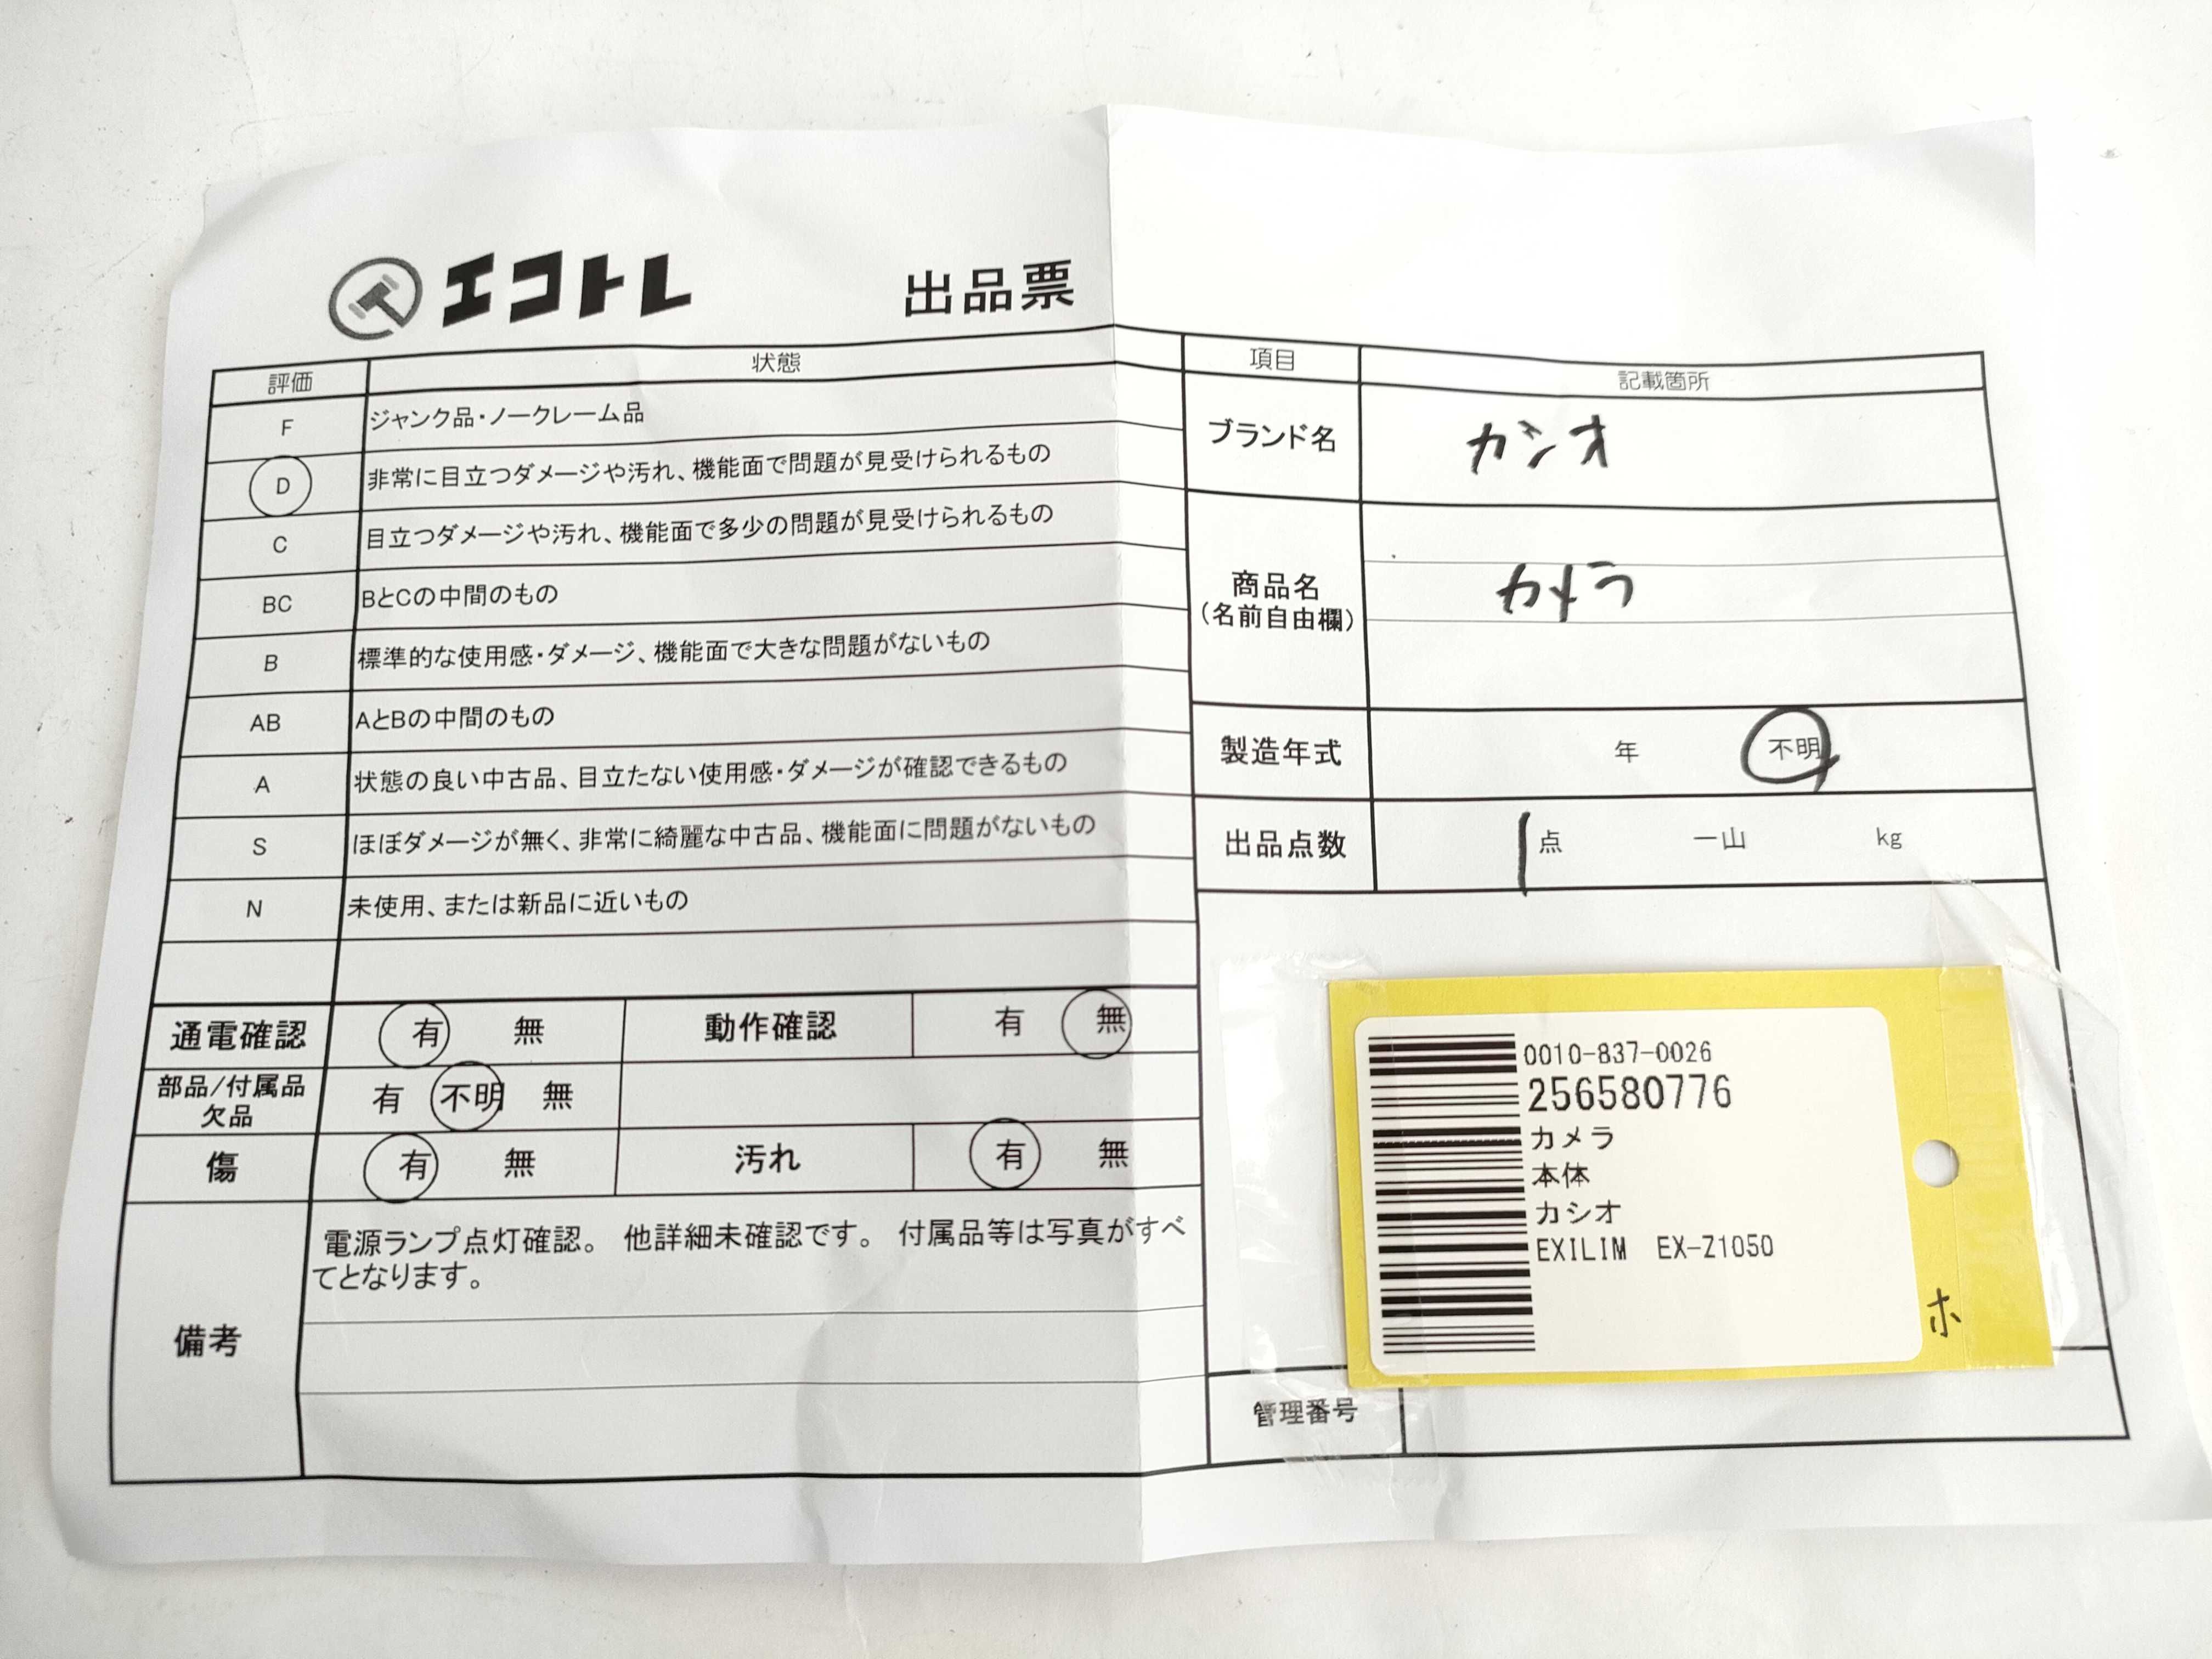 エコトレ 出品票
評価 状態
F ジャンク品・ノークレーム品
D 非常に目立つダメージや汚れ、機能面で問題が見受けられるもの
C 目立つダメージや汚れ、機能面で多少の問題が見受けられるもの
BC BとCの中間のもの
B 標準的な使用感・ダメージ、機能面で大きな問題がないもの
AB AとBの中間のもの
A 状態の良い中古品、目立たない使用感・ダメージが確認できるもの
S ほぼダメージが無く、非常に綺麗な中古品、機能面に問題がないもの
N 未使用、または新品に近いもの
通電確認 有 無 動作確認 有 無
部品/付属品
欠品 有 不明 無
傷 有 無 汚れ 有 無
備考
電源ランプ点灯確認。 他詳細未確認です。 付属品等は写真がすべ
てとなります。
項目 記載箇所
ブランド名 カシオ
商品名
(名前自由欄) カメラ
製造年式 年 不明
出品点数 1点 一山 kg
0010-837-0026
256580776
カメラ
本体
カシオ
EXILIM EX-Z1050
ホ
管理番号